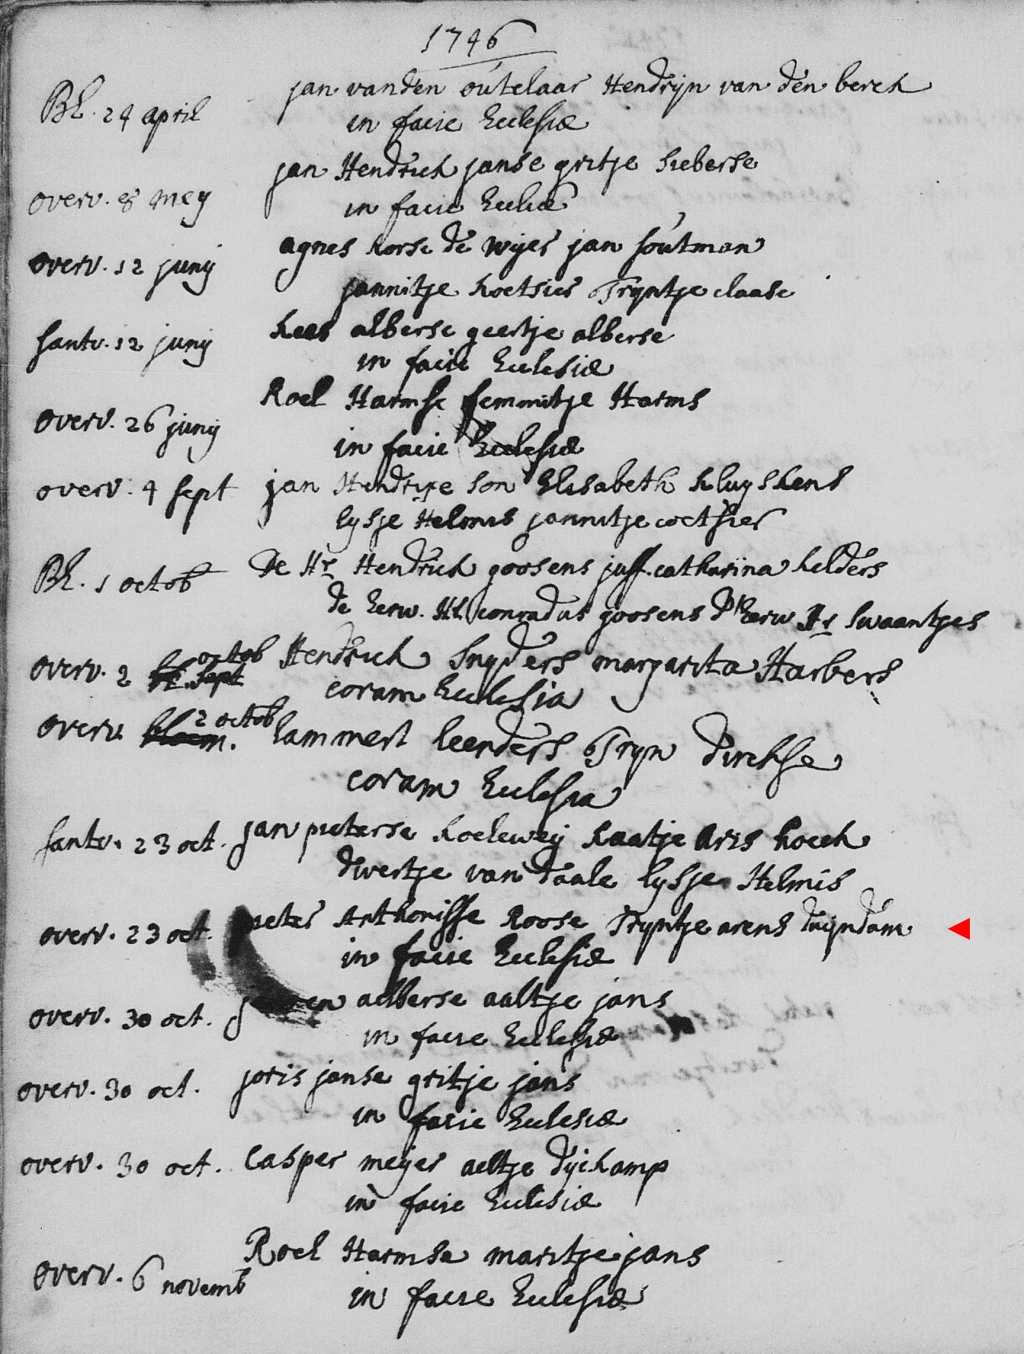 1746
Bl. 24 april jan vanden outelaar Hendrijn van den berch
in facie Ecclesiæ
overv. 8 mey jan Hendrich janse gritje sieberse
in facie Eccliæ
overv. 12 junij agnes korse de wijes jan soutman
jannitje koetsies Tryntje claase
santv. 12 junij kees alberse geertje alberse
in facie Ecclesiæ
overv. 26 junij Roel Harmse femmitje Harms
in facie Ecclesiæ
overv. 4 sept jan son Elisabeth kluyskens
lysje Helmis jannitje coetsier
Bl. 1 octob De Hr. Hendrich goosens juff. catharina helders
de Eerw. Hr. conradus goosens Eerw Hr swaantjes
overv. 2 octob Hendrich Snyders margarita Harbers
coram Ecclesia
overv. 2 octob lammert leenders Tryn dirckse
coram Ecclesia
santv. 23 oct. jan pieterse koelewey kaatje aris koeck
divertje van daale lysje Helmis
overv. 23 oct. peter Anthonisse Roose Tryntje arens duijndam
in facie Ecclesiæ
overv. 30 oct. aelberse aaltje jans
in facie Ecclesiæ
overv. 30 oct. joris janse gritje jans
in facie Ecclesiæ
overv. 30 oct. Casper meyer aeltje dijckamp
in facie Ecclesiæ
overv. 6 novemb Roel Harmse maritje jans
in facie Ecclesiæ